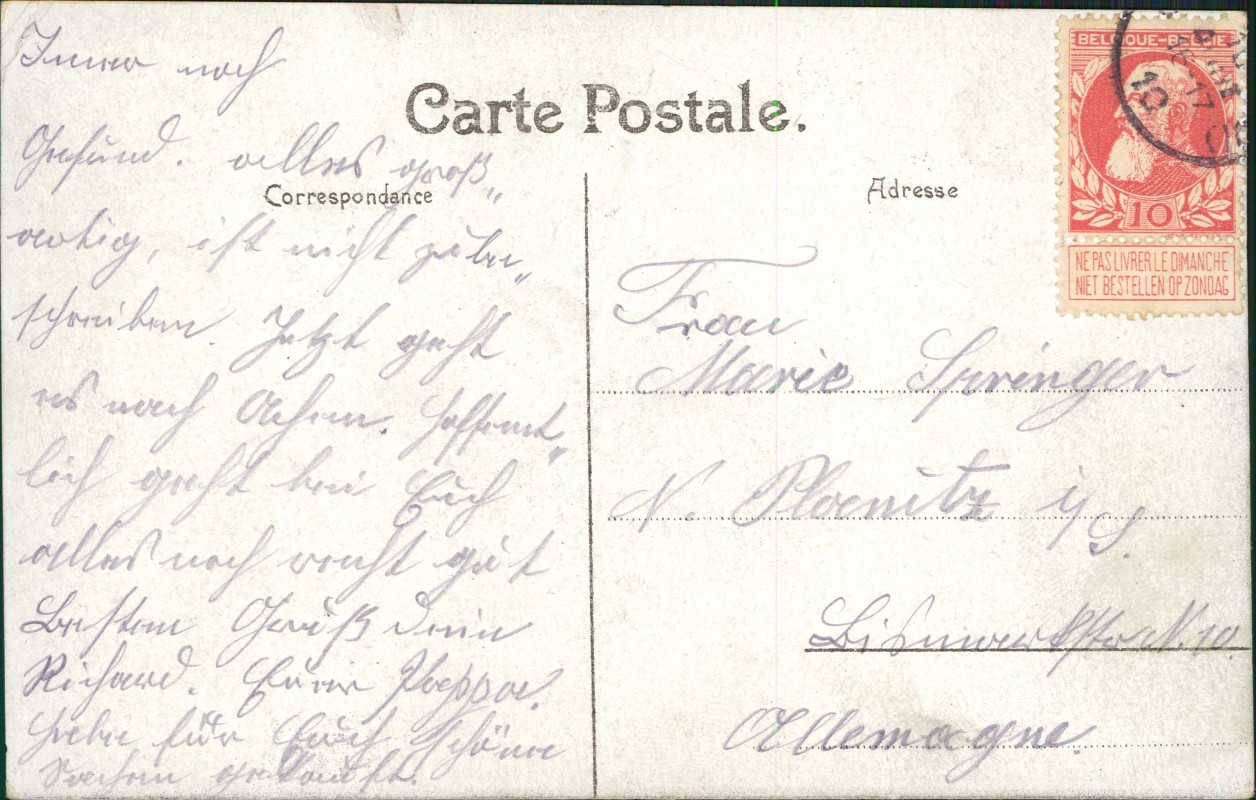 Carte Postale.
Correspondance
Immer noch
Gesund. alles groß„
artig, ist nicht zu be„
schreiben. Jetzt geht
es nach Achen. Hoffent„
lich geht bei Euch
alles noch recht gut
Besten Gruß dein
Richard. Euer Pappa.
Habe für Euch schöne
Sachen gekauft.
Adresse
Frau
Marie Springer
N. Planitz i/S.
Bismarkstr N. 10
Allemagne.
BELGIQUE-BELGIË
10
NE PAS LIVRER LE DIMANCHE
NIET BESTELLEN OP ZONDAG